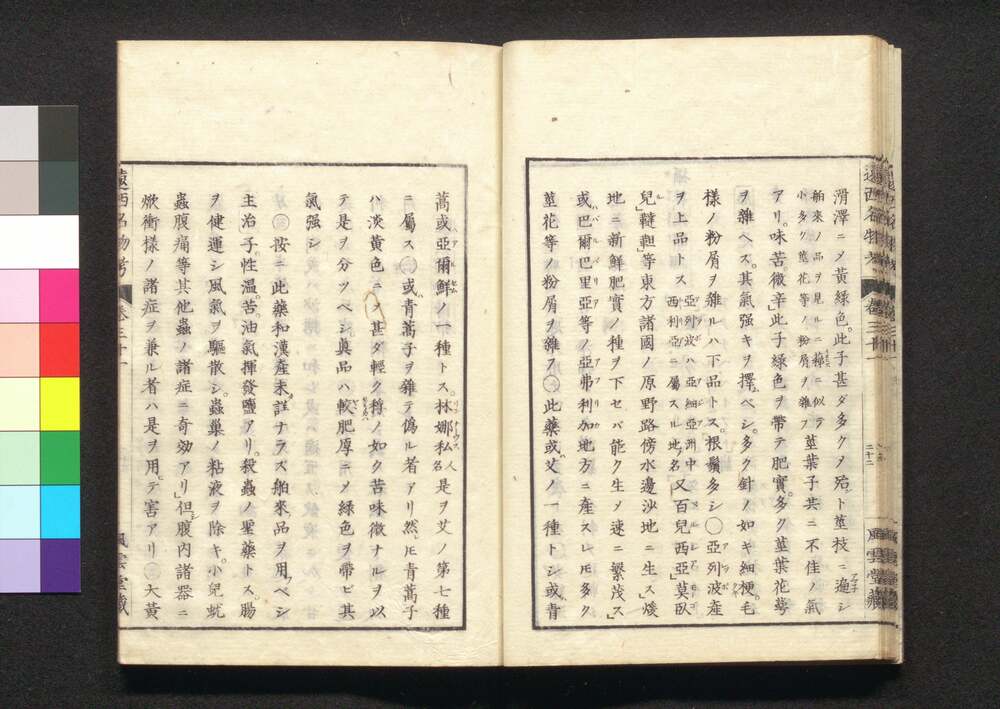 滑澤ニㄨ黄緑色。此子甚ダ多クㄨ殆ント莖枝ニ遍シ
舶來ノ品ヲ見ルニ稗ニ似テ
小多ク莖花等ノ粉屑ヲ雜フ
莖葉子共ニ不佳ノ氣
アリ。味苦。微辛」此子緑色ヲ帶テ肥實。多ク莖葉花蕚
ヲ雜ヘス。其氣强キヲ擇ベシ。多ク針ノ如キ細梗。毛
様ノ粉屑ヲ雜ルハ下品トス。根鬚多シ○亞列波産
ヲ上品トス
亞列波ハ亞細亞洲中
西利亞ニ屬スル地ノ名
又百兒西亞莫臥
兒」韃靼」等東方諸國ノ原野路傍水邊沙地ニ生ス」煖
地ニ新鮮肥實ノ種ヲ下セバ能ク生ㄨ速ニ繁茂ス」
或巴爾巴里亞等ノ亞弗利加地方ニ産スレ𪜈多ク
莖花等ノ粉屑ヲ雜フ○此藥或艾ノ一種トシ或青
遠西名物考
卷三十一
二十二
風雲堂藏
蒿或亞爾鮮ノ一種トス。林娜私
人名
是ヲ艾ノ第七種
ニ屬ス○或青蒿子ヲ雜テ僞ル者アリ然𪜈青蒿子
ハ淡黄色ニㄨ甚ダ輕ク稃ノ如ク苦味微ナルヲ以
テ是ヲ分ツベシ眞品ハ較肥厚ニㄨ緑色ヲ帶ビ其
氣强シ
按ニ此藥和漢産未詳ナラズ舶來品ヲ用フベシ
主治 子。性溫。苦。油氣揮發鹽アリ。殺蟲ノ聖藥トス。腸
ヲ健運シ風氣ヲ驅散シ。蟲巢ノ粘液ヲ除キ。小兒蚘
蟲腹痛等其他蟲ノ諸症ニ奇効アリ」但腹内諸器ニ
焮衝樣ノ諸症ヲ兼ル者ハ是ヲ用。テ害アリ 大黄
遠西名物考
卷三十一
風雲堂藏